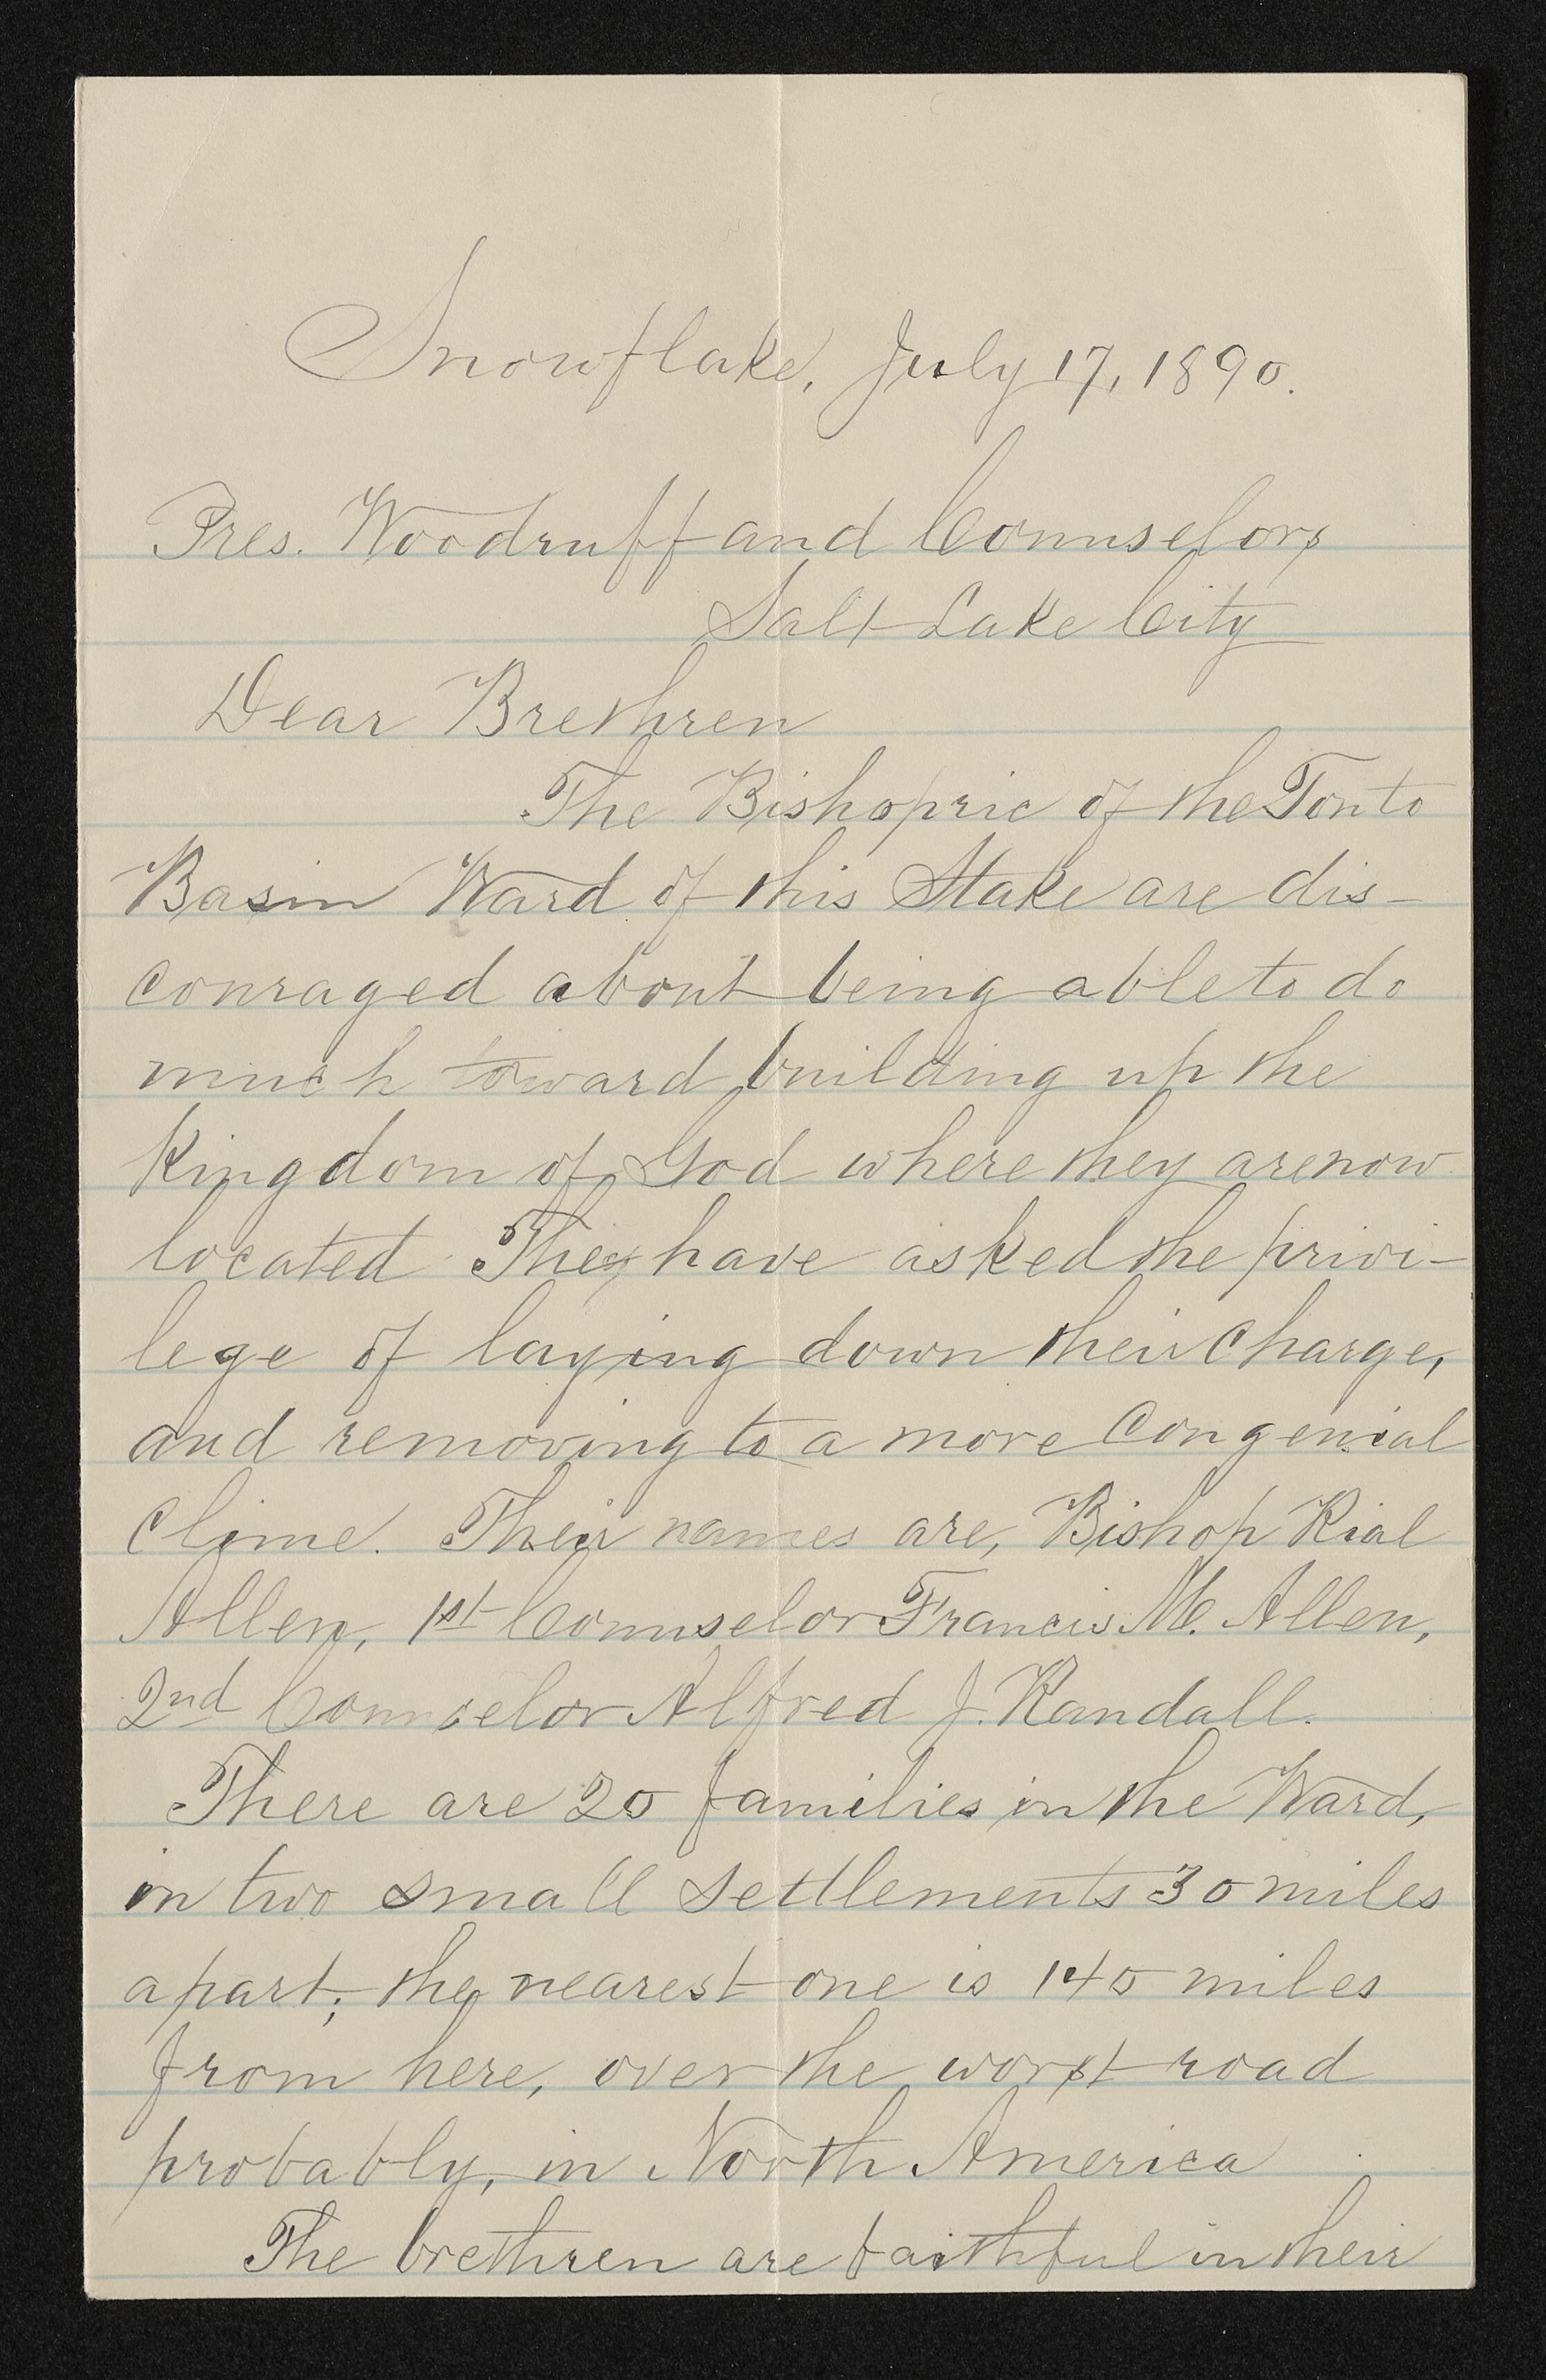 Snowflake, July 17, 1890.
Pres. Woodruff and Counselors
Salt Lake City
Dear Brethren
The Bishopric of the Tonto
Basin Ward of this Stake are dis-
couraged about being able to do
much toward building up the
Kingdom of God where they are now
located They have asked the privi-
lege of laying down their charge,
and removing to a more congenial
clime. Their names are, Bishop Rial
Allen, 1st Counselor Francis M. Allen,
2nd Counselor Alfred J. Randall.
There are 20 families in the Ward,
in two small settlements 30 miles
apart; the nearest one is 140 miles
from here, over the worst road
probably, in North America
The brethren are faithful in their